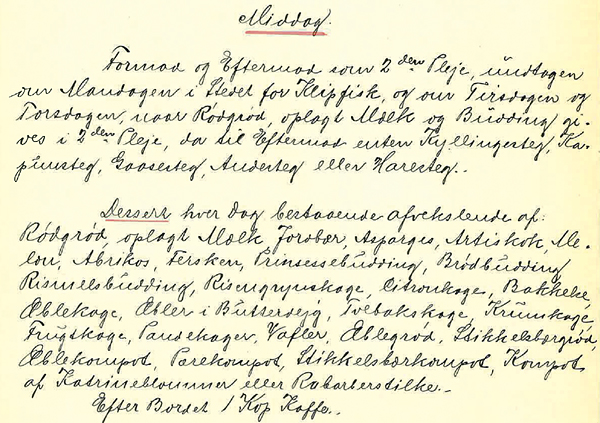 Middag.
Formad og Eftermad som 2den Pleje, undtagen
om Mandagen i Stedet for Klipfisk, og om Tirsdagen og
Torsdagen, naar Rødgrød, oplagt Mælk og Budding gi-
ves i 2den Pleje, da til Eftermad enten Kyllingesteg, Ka-
punsteg, Gaasesteg, Andesteg eller Haresteg..
Dessert hver Dag bestaaende afvekslende af:
Rødgrød, oplagt Mælk, Jordbær, Asparges, Artiskok, Me-
lon, Abrikos, Fersken, Prinsessebudding, Brødbudding
Rismelsbudding, Risengrynskage, Citronkage, Bakkelse,
Æblekage, Æbler i Butterdejg, Tvebakskage, Krumkage
Frugtkage, Pandekager, Vafler, Æblegrød, Stikkelsbærgrød,
Æblekompot, Pærekompot, Stikkelsbærkompot, Kompot
af Katrineblommer eller Rabarberstilke..
Efter Bordet 1 Kop Kaffe..